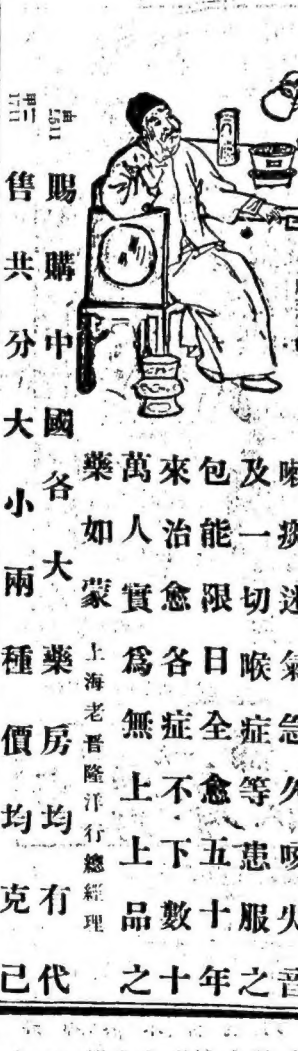 痰迷氣急久咳失音
及一切喉症等患服之
包能限日全愈五十年
來治愈各症不下數十
萬人實爲無上上品之
藥如蒙
上海老晉隆洋行總經理
賜購中國各大藥房均有代
售共分大小兩種價均克己